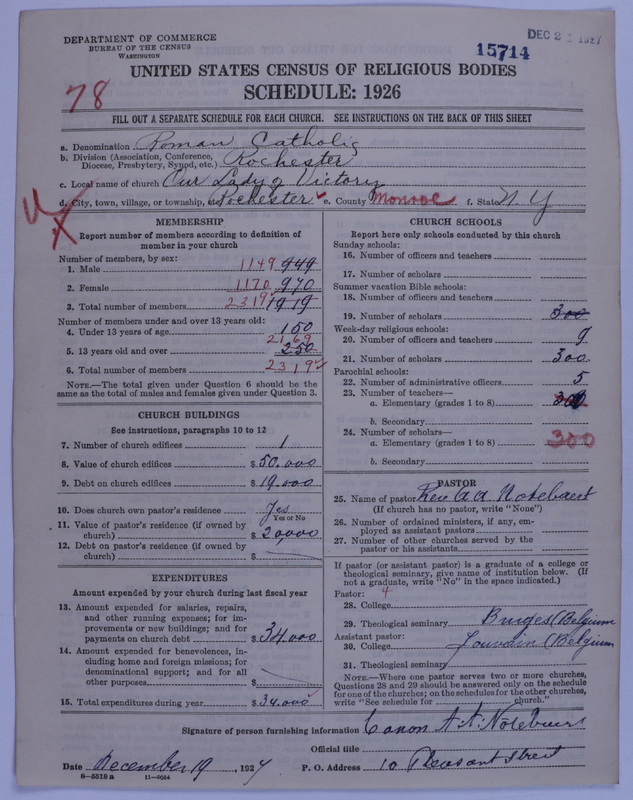 DEPARTMENT OF COMMERCE
BUREAU OF THE CENSUS
WASHINGTON
DEC 2 1927
15714
UNITED STATES CENSUS OF RELIGIOUS BODIES
78
SCHEDULE: 1926
FILL OUT A SEPARATE SCHEDULE FOR EACH CHURCH. SEE INSTRUCTIONS ON THE BACK OF THIS SHEET
a. Denomination Roman Catholic
b. Division (Association, Conference, Diocese, Presbytery, Synod, etc.) Rochester
c. Local name of church Our Lady of Victory
d. City, town, village, or township, etc. Rochester e. County Monroe f. State N. Y
MEMBERSHIP
Report number of members according to definition of
member in your church
Number of members, by sex:
1. Male 1149 949
2. Female 1170 970
3. Total number of members 2319 1919
Number of members under and over 13 years old:
4. Under 13 years of age 150
5. 13 years old and over 2169 250
6. Total number of members 2319
NOTE.—The total given under Question 6 should be the
same as the total of males and females given under Question 3.
CHURCH BUILDINGS
See instructions, paragraphs 10 to 12
7. Number of church edifices 1
8. Value of church edifices $ 50.000
9. Debt on church edifices $ 19.000
10. Does church own pastor's residence Yes
Yes or No
11. Value of pastor's residence (if owned by
church) $ 20,000
12. Debt on pastor's residence (if owned by
church) $
EXPENDITURES
Amount expended by your church during last fiscal year
13. Amount expended for salaries, repairs,
and other running expenses; for im-
provements or new buildings; and for
payments on church debt $ 34.000
14. Amount expended for benevolences, in-
cluding home and foreign missions; for
denominational support; and for all
other purposes $
15. Total expenditures during year $ 34.000
CHURCH SCHOOLS
Report here only schools conducted by this church
Sunday schools:
16. Number of officers and teachers
17. Number of scholars
Summer vacation Bible schools:
18. Number of officers and teachers
19. Number of scholars 300
Week-day religious schools:
20. Number of officers and teachers 9
21. Number of scholars 300
Parochial schools:
22. Number of administrative officers 5
23. Number of teachers—
a. Elementary (grades 1 to 8)
b. Secondary
24. Number of scholars—
a. Elementary (grades 1 to 8) 300
b. Secondary
PASTOR
25. Name of pastor Rev. A. A. Notebaert
(If church has no pastor, write "None")
26. Number of ordained ministers, if any, em-
ployed as assistant pastors
27. Number of other churches served by the
pastor or his assistants
If pastor (or assistant pastor) is a graduate of a college or
theological seminary, give name of institution below. (If
not a graduate, write "No" in the space indicated.)
Pastor: 4
28. College
29. Theological seminary Bruges (Belgium
Assistant pastor:
30. College Louvain (Belgium
31. Theological seminary
NOTE.—Where one pastor serves two or more churches,
Questions 28 and 29 should be answered only on the schedule
for one of the churches; on the schedules for the other churches,
write "See schedule for church."
Signature of person furnishing information Canon A. A. Notebaert
Official title
Date December 19, 1927 P. O. Address 10 Pleasant Street
8-5518a 11-4034